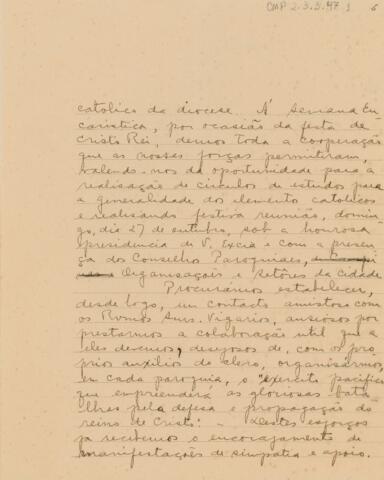 CMP 2.3.3.47 1 6
catolica da diocese. A' Semana Eu-
caristica, por ocasião da festa de
Cristo Rei, demos toda a cooperação
que as nossas forças permitiram,
valendo-nos da oportunidade para a
realisação de circulos de estudos para
a generalidade dos elementos catolicos
e realisando festiva reunião, domin-
go, dia 27 de outubro, sob a honrosa
presidencia de V. Excia e com a presen-
ça dos Conselhos Paroquiaes,
Organisaçoẽs e Setôres da Cidade
Procurámos estabelecer,
desde logo, um contacto amistoso com
os Rvmos Snrs. Vigarios, ansiosos por
prestarmos a colaboração util que a
eles devemos, desejosos de, com os pro-
prios auxilios do clero, organisármos,
em cada paroquia, o "exercito pacifico
que empreenderá as gloriosas bata-
lhas pela defesa e propagação do
reino de Cristo: - Destes esforços
ja recebemos o encorajamento de
manifestações de simpatia e apoio.